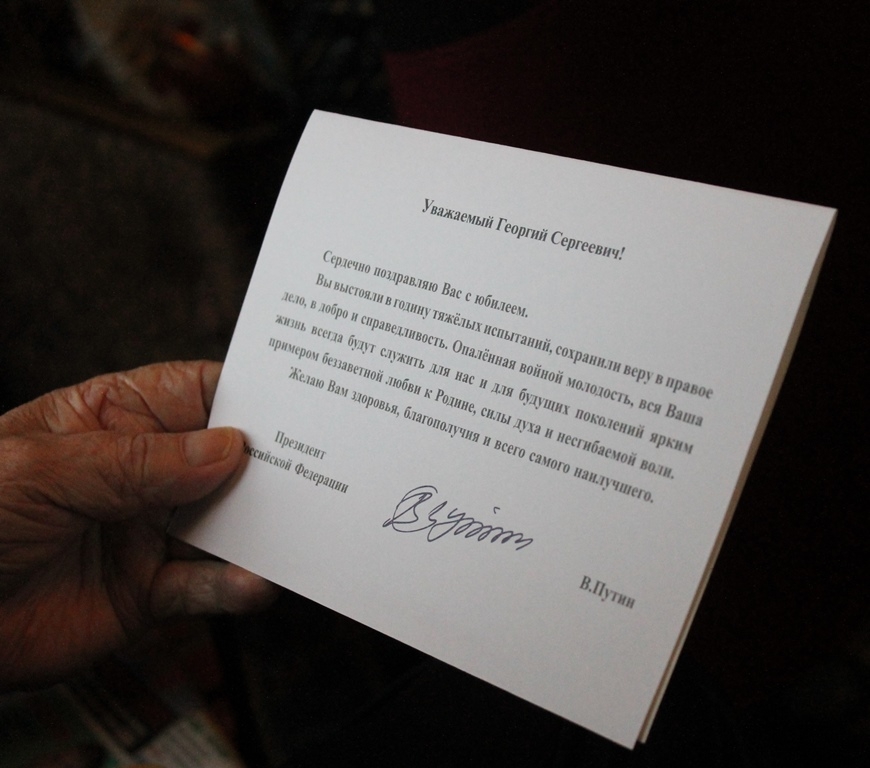 Уважаемый Георгий Сергеевич!
Сердечно поздравляю Вас с юбилеем.
Вы выстояли в годину тяжёлых испытаний, сохранили веру в правое
дело, в добро и справедливость. Опалённая войной молодость, вся Ваша
жизнь всегда будут служить для нас и для будущих поколений ярким
примером беззаветной любви к Родине, силы духа и несгибаемой воли.
Желаю Вам здоровья, благополучия и всего самого наилучшего.
Президент
оссийской Федерации
В.Путин